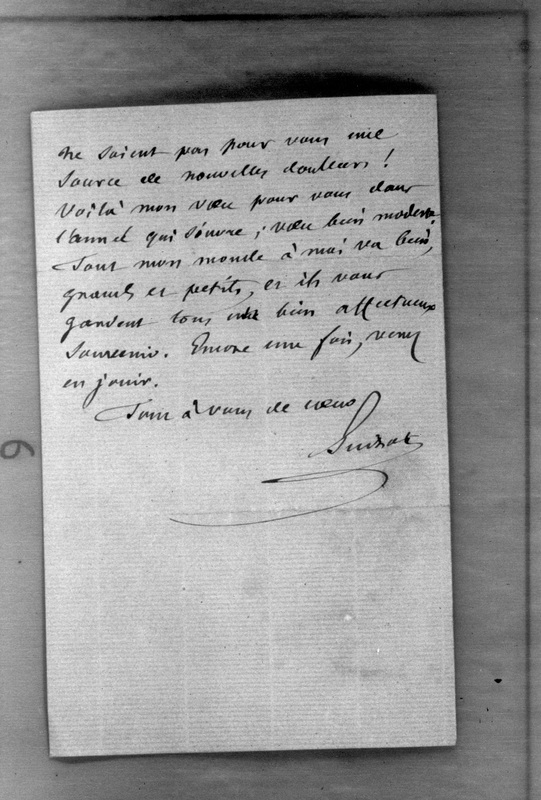 ne soient pas pour vous une
source de nouvelles douleurs !
Voilà mon vœu pour vous dans
l'année qui s'ouvre ; vœu bien modeste.
Tout mon monde à moi va bien,
grands et petits, et ils vous
gardent tous un bien affectueux
souvenir. Encore une fois, venez
en jouir.
Tout à vous de cœur
Guizot
6